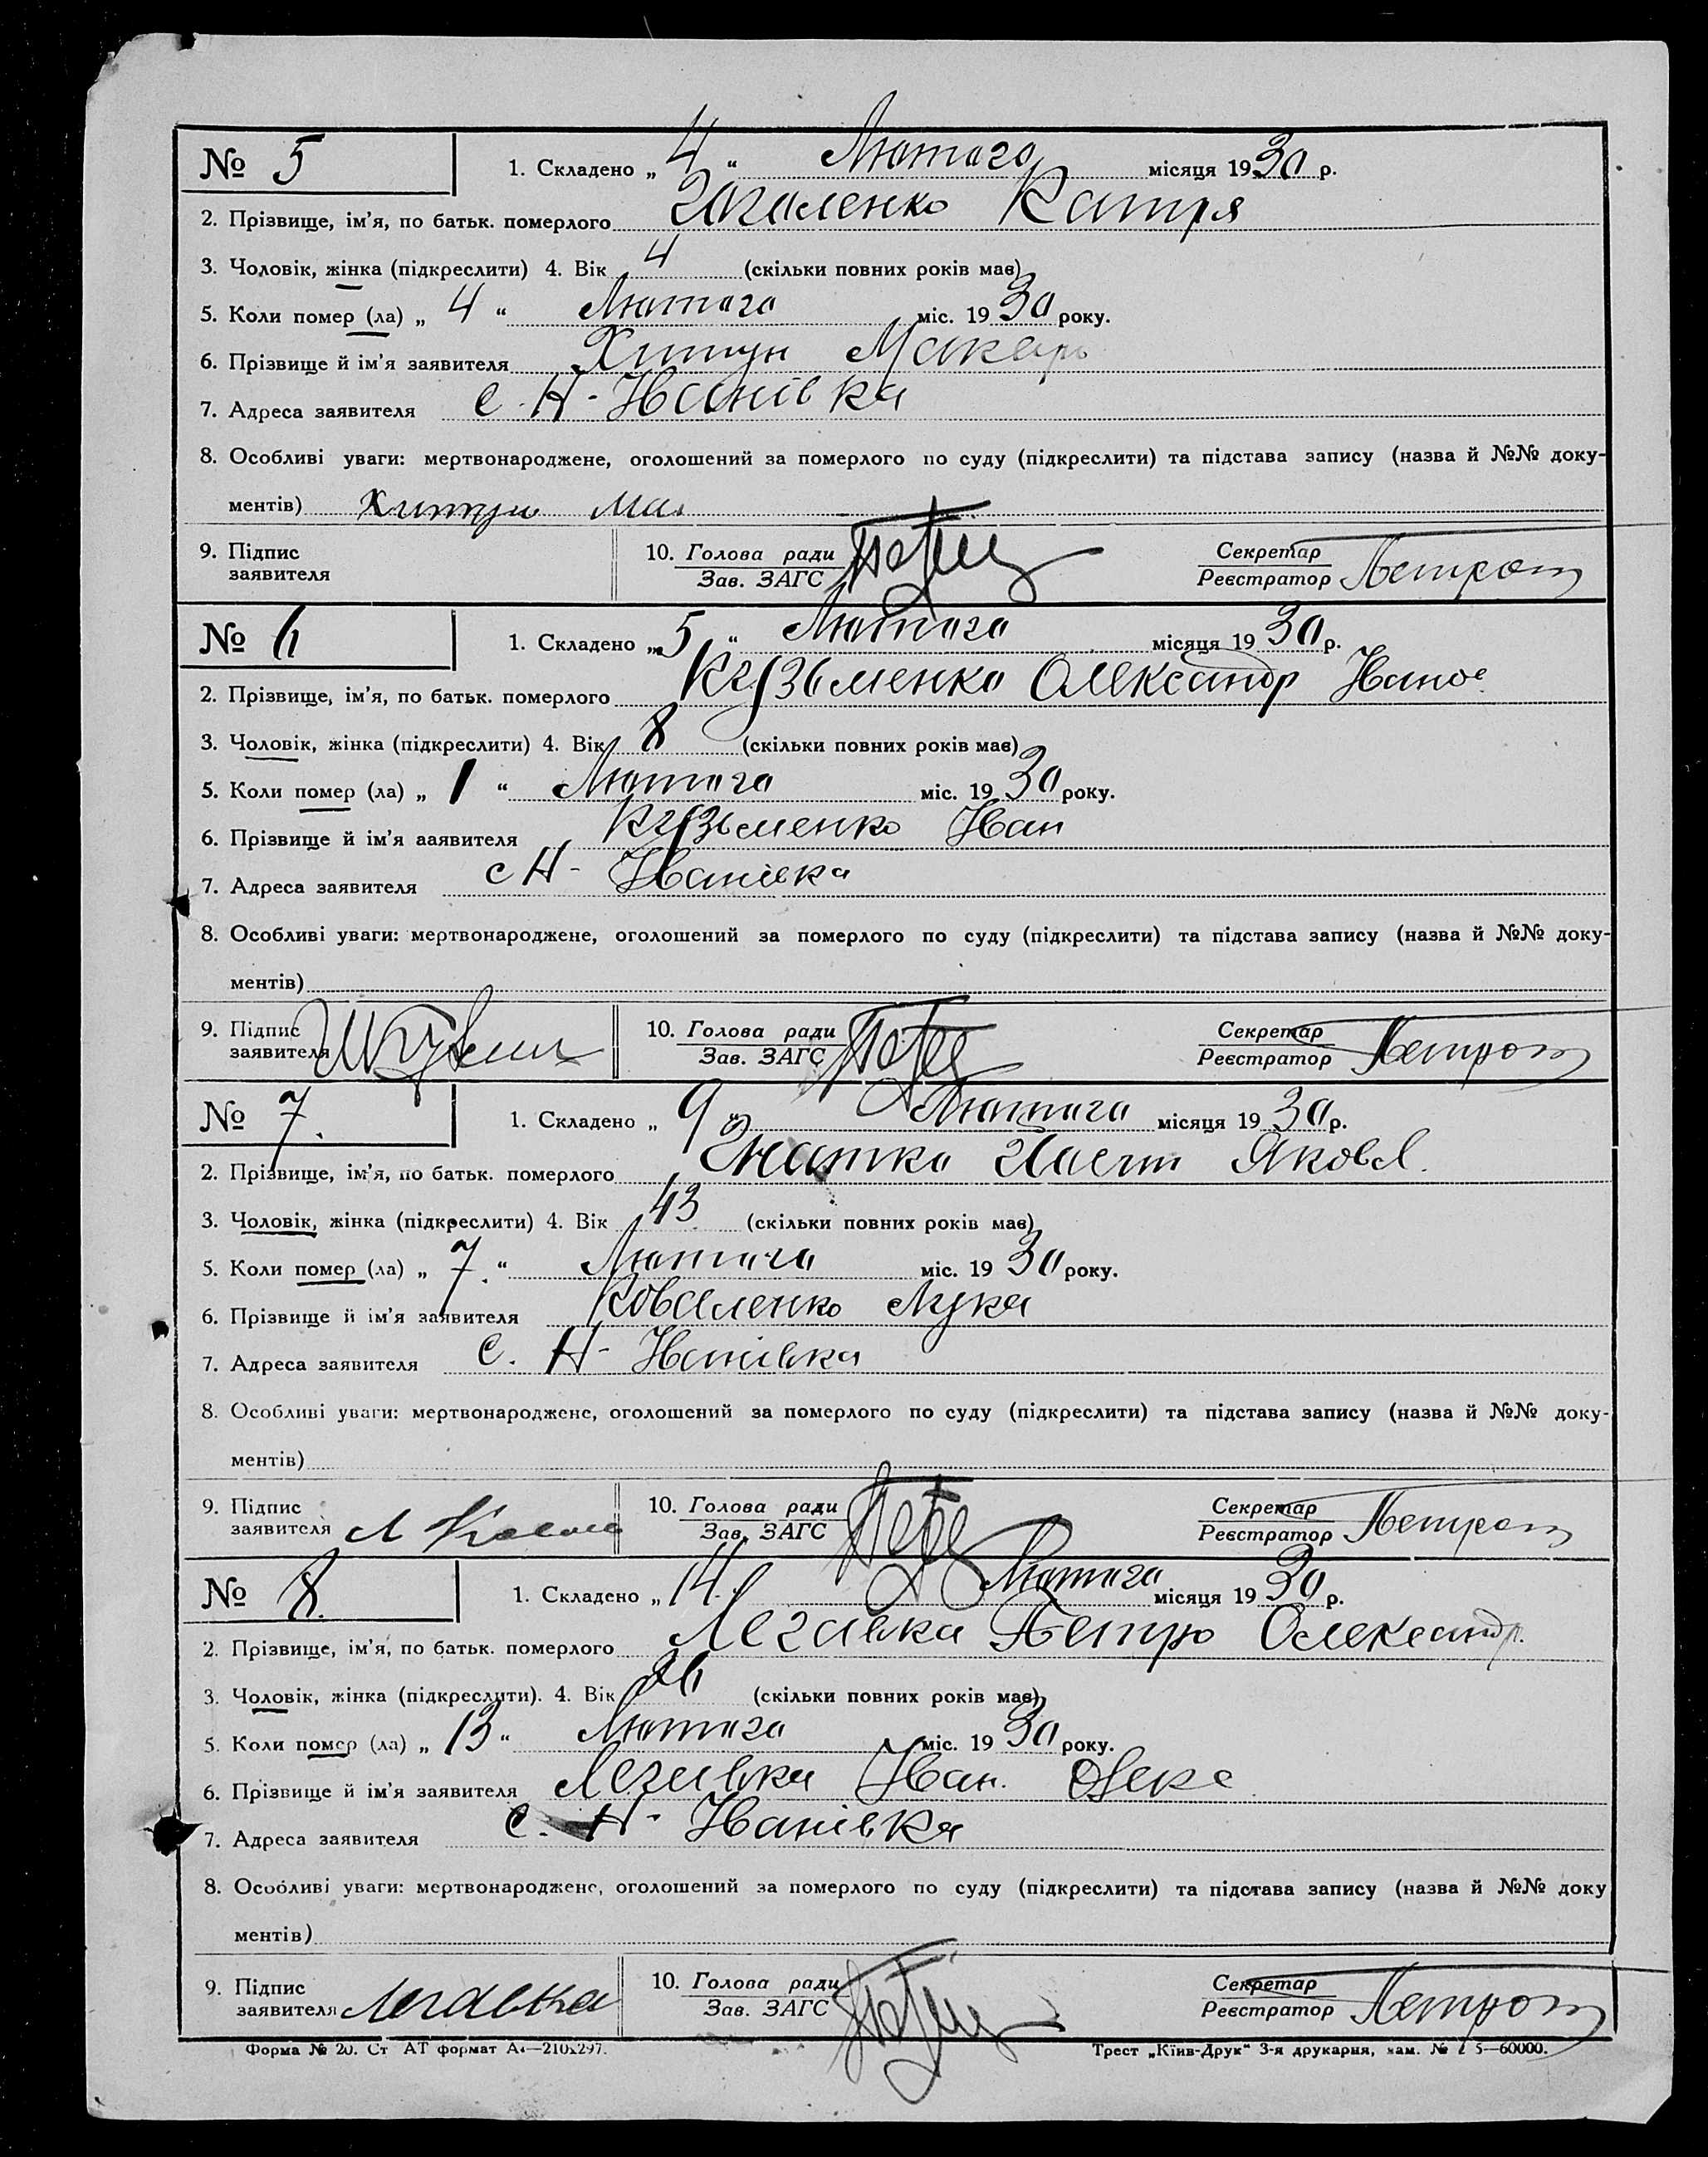 № 5 1. Складено „ 4 “ Лютого місяця 1930 р.
2. Прізвище, ім'я, по батьк. померлого Катря
3. Чоловік, жінка (підкреслити) 4. Вік 4 (скільки повних років має)
5. Коли помер (ла) „ 4 “ Лютого міс. 1930 року.
6. Прізвище й ім'я заявителя Хитун Макарь
7. Адреса заявителя с. Н-Іванівка
8. Особливі уваги: мертвонароджене, оголошений за померлого по суду (підкреслити) та підстава запису (назва й №№ доку-
ментів) Хитун Мак
9. Підпис заявителя 10. Голова ради Зав. ЗАГС Секретар Реєстратор
№ 6 1. Складено „ 5 “ Лютого місяця 1930 р.
2. Прізвище, ім'я, по батьк. померлого Кузьменко Олександр Іванов.
3. Чоловік, жінка (підкреслити) 4. Вік 8 (скільки повних років має)
5. Коли помер (ла) „ 1 “ Лютого міс. 1930 року.
6. Прізвище й ім'я ааявителя Кузьменко Іван
7. Адреса заявителя с Н-Іванівка
8. Особливі уваги: мертвонароджене, оголошений за померлого по суду (підкреслити) та підстава запису (назва й №№ доку-
ментів)
9. Підпис заявителя 10. Голова ради Зав. ЗАГС Секретар Реєстратор
№ 7. 1. Складено „ 9 “ Лютого місяця 1930 р.
2. Прізвище, ім'я, по батьк. померлого Яковл.
3. Чоловік, жінка (підкреслити) 4. Вік 43 (скільки повних років має)
5. Коли помер (ла) „ 7. “ Лютого міс. 1930 року.
6. Прізвище й ім'я заявителя Коваленко Лука
7. Адреса заявителя с. Н-Іванівка
8. Особливі уваги: мертвонароджене, оголошений за померлого по суду (підкреслити) та підстава запису (назва й №№ доку-
ментів)
9. Підпис заявителя Л 10. Голова ради Зав. ЗАГС Секретар Реєстратор
№ 8. 1. Складено „ 14. Лютого місяця 1930 р.
2. Прізвище, ім'я, по батьк. померлого Легавка Петро Олександр.
3. Чоловік, жінка (підкреслити). 4. Вік 26 (скільки повних років має)
5. Коли помер (ла) „ 13 “ Лютого міс. 1930 року.
6. Прізвище й ім'я заявителя Легавка Іван. Олекс
7. Адреса заявителя с. Н-Іванівка
8. Особливі уваги: мертвонароджене, оголошений за померлого по суду (підкреслити) та підстава запису (назва й №№ доку
ментів)
9. Підпис заявителя Легавка 10. Голова ради Зав. ЗАГС Секретар Реєстратор
Форма № 20. Ст АТ формат А4—210х297. Трест „Київ-Друк“ 3-я друкарня, зам. №